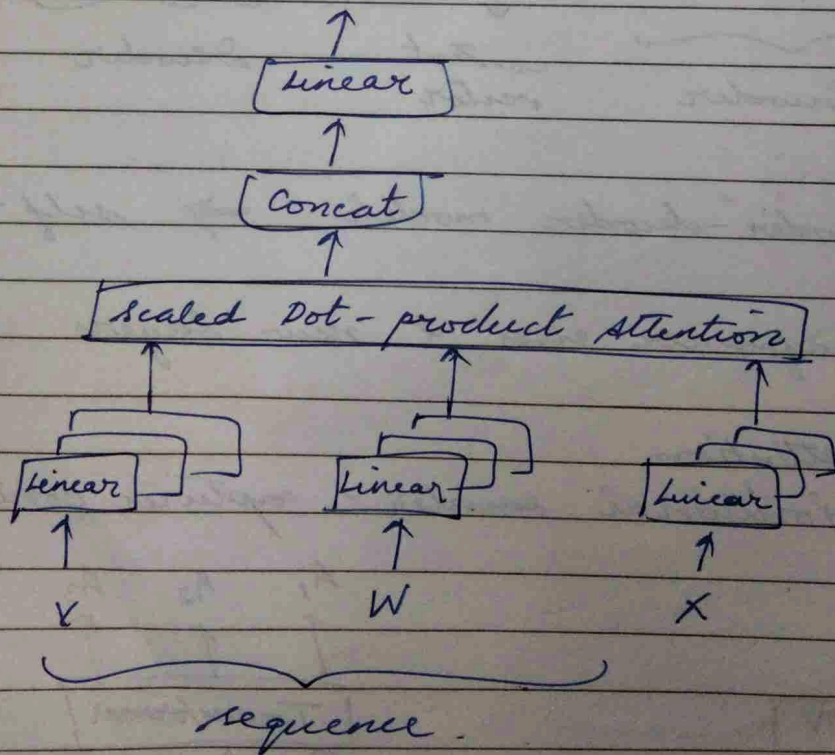 Linear
Concat
Scaled Dot-product Attention
Linear Linear Linear
V W X
sequence.